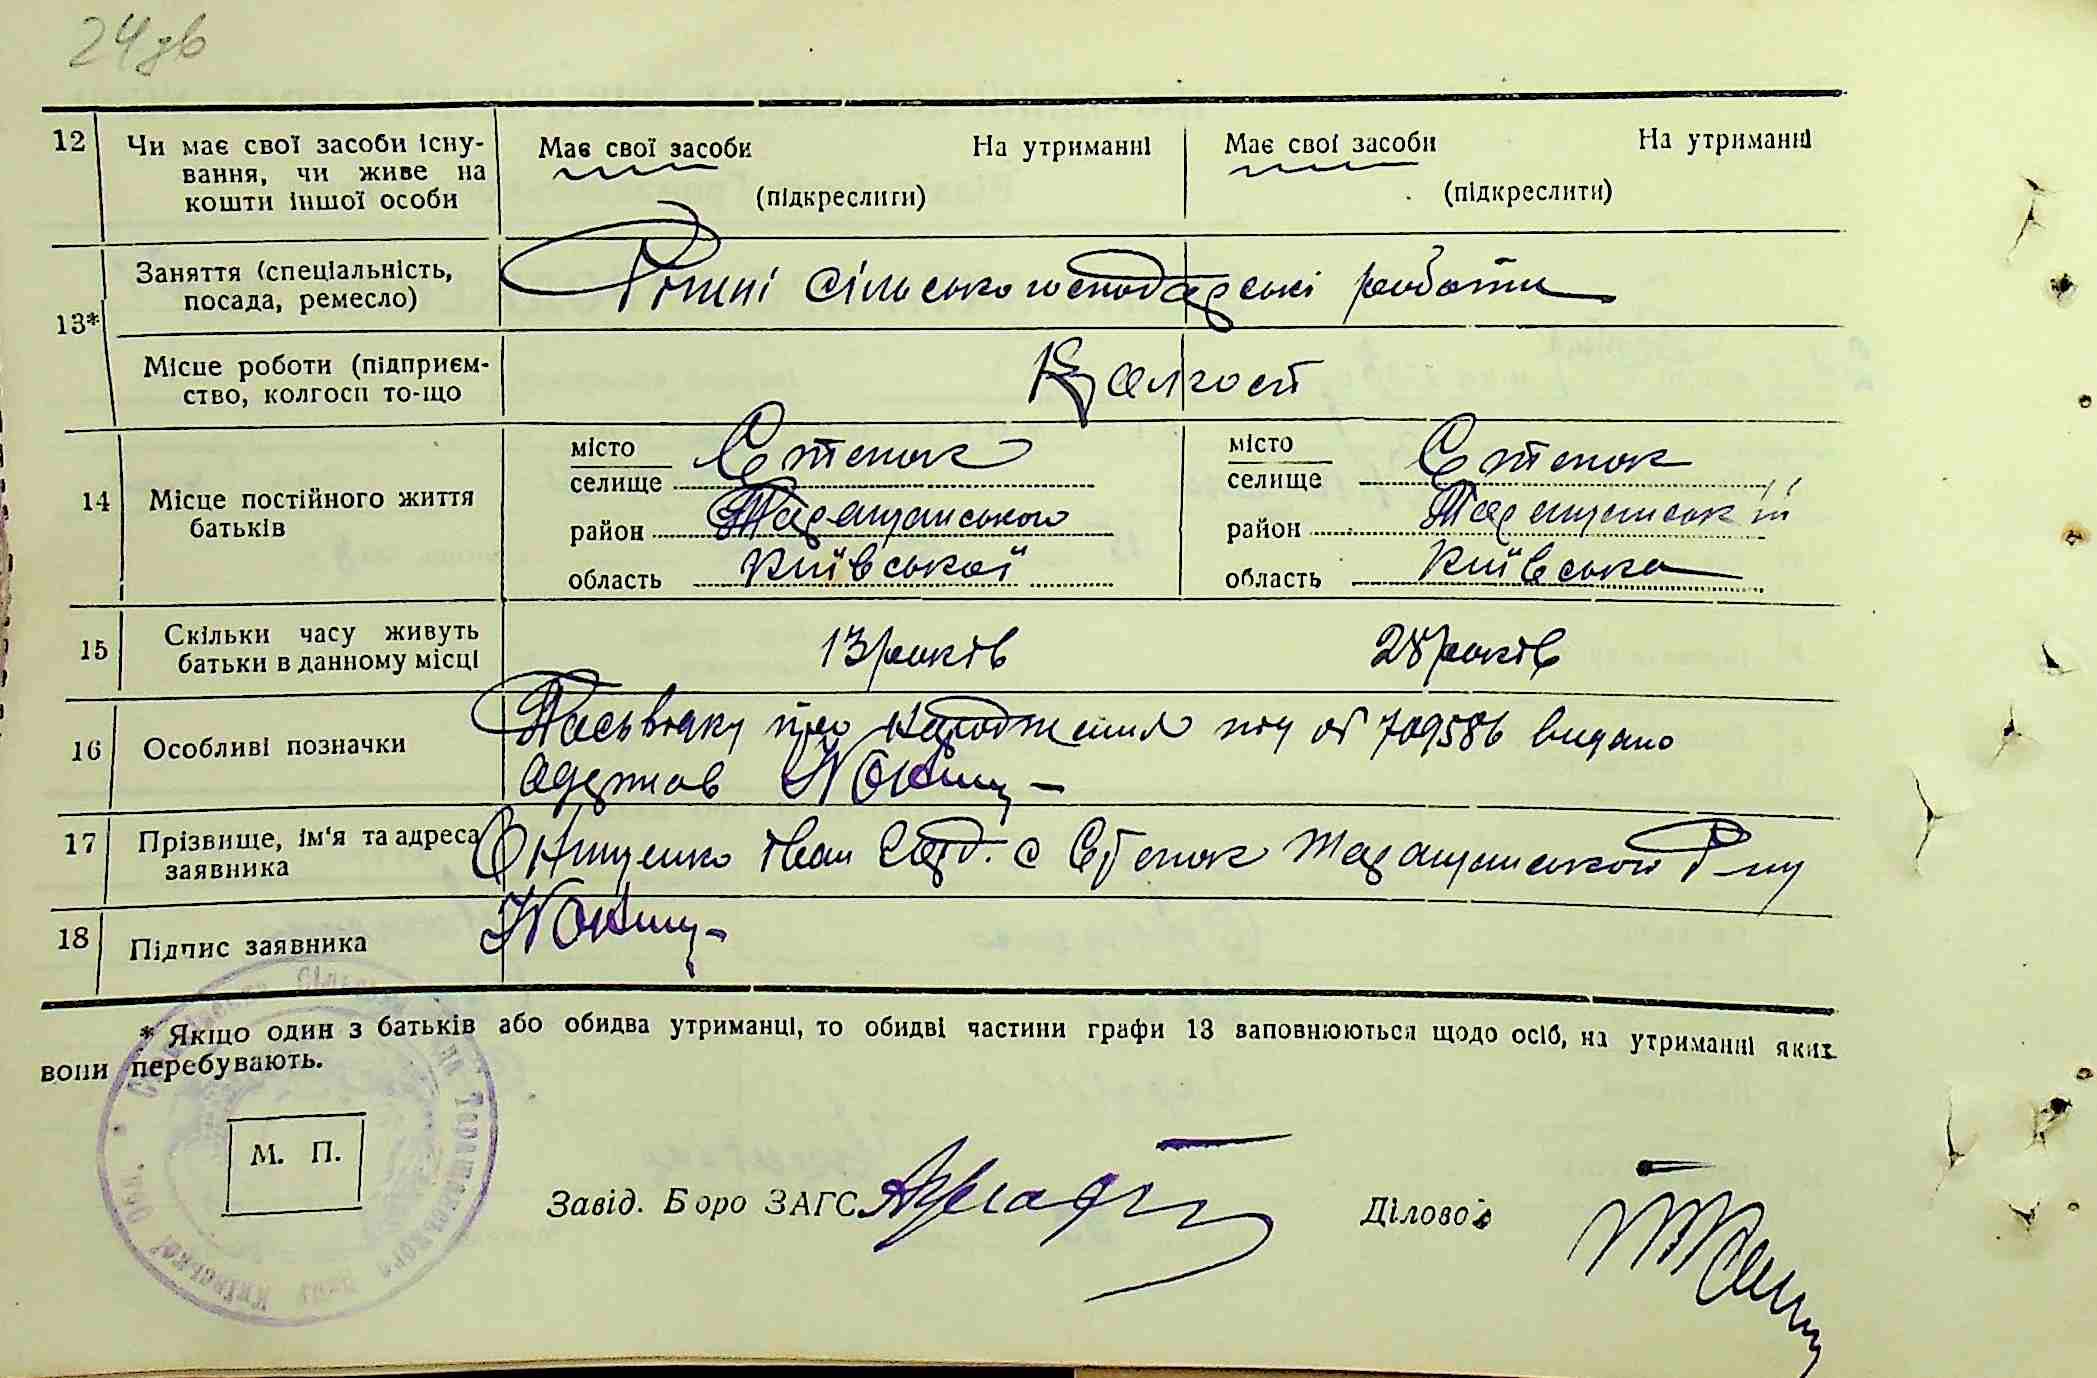 24 зв
12 Чи має свої засоби існу- Має свої засоби На утриманні Має свої засоби На утриманні
вання, чи живе на (підкреслити) (підкреслити)
кошти іншої особи
13* Заняття (спеціальність, Різні сільськогосподарські роботи
посада, ремесло)
Місце роботи (підприєм- Колгосп
ство, колгосп то-що
14 Місце постійного життя батьків
місто Єтенок місто Єтенок
селище селище
район Таращанського район Таращанський
область Київської область Київська
15 Скільки часу живуть 13 років 28 років
батьки в данному місці
16 Особливі позначки про народження 709586 видано
одержав
17 Прізвище, ім'я та адреса Онищенко Іван с Таращанського Р-ну
заявника
18 Підпис заявника
* Якщо один з батьків або обидва утриманці, то обидві частини графи 13 заповнюються щодо осіб, на утриманні яких
вони перебувають.
М. П.
Завід. Боро ЗАГС Діловод